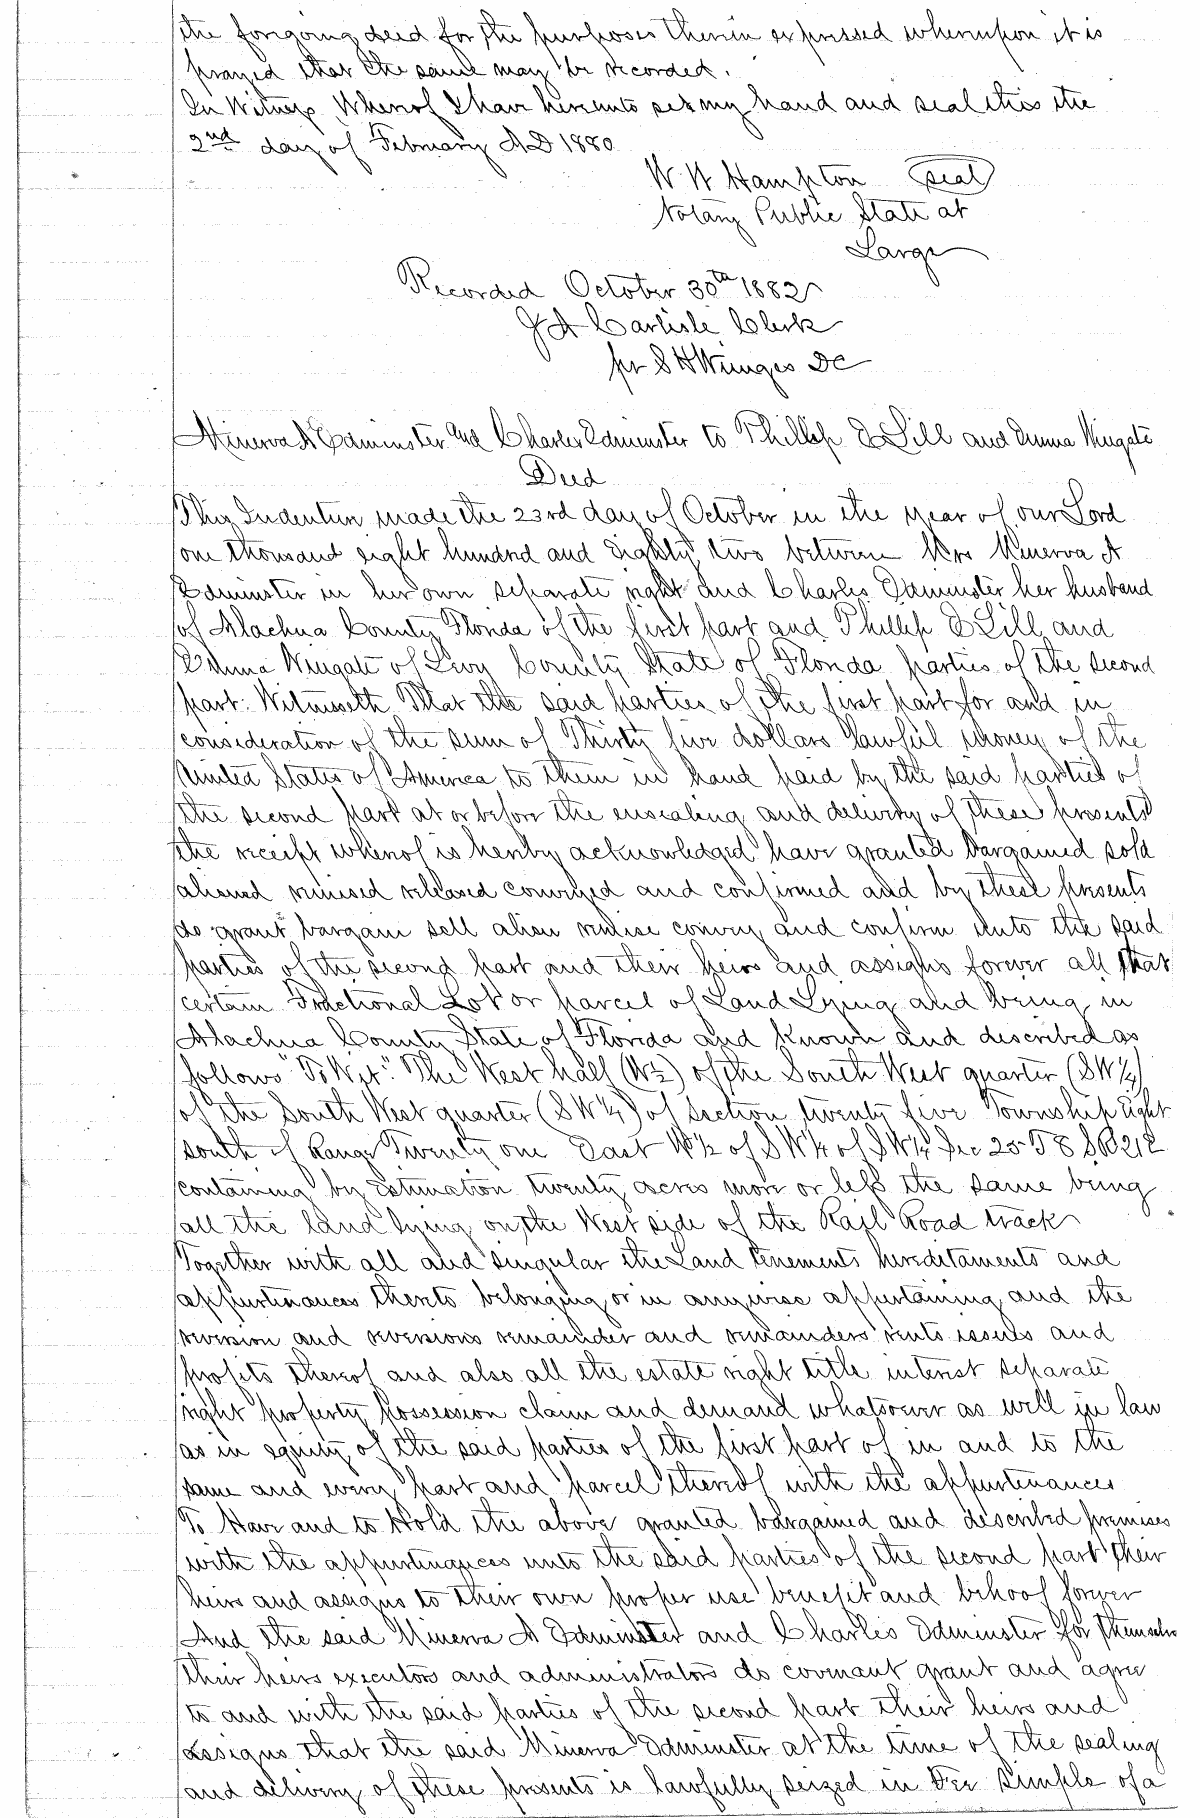 the foregoing deed for the purposes therein expressed whereupon it is
prayed that the same may be recorded.
In Witness Whereof I have hereunto set my hand and seal this the
2nd day of February AD 1880
W W Hampton seal
Notary Public State at
Large
Recorded October 30th 1882
J A Carlisle Clerk
pr S H Wienges DC
Minerva A Edminster and Charles Edminster to Phillip E Lill and Emma Wingate
Deed
This Indenture made the 23rd day of October in the year of our Lord
one thousand eight hundred and Eighty two between Mrs Minerva A
Edminster in her own separate right and Charles Edminster her husband
of Alachua County Florida of the first part and Phillip E Lill and
Emma Wingate of Levy County State of Florida parties of the second
part: Witnesseth That the said parties of the first part for and in
consideration of the sum of Thirty five dollars lawful money of the
United States of America to them in hand paid by the said parties of
the second part at or before the ensealing and delivery of these presents
the receipt whereof is hereby acknowledged have granted bargained sold
aliened remised released conveyed and confirmed and by these presents
do grant bargain sell alien remise convey and confirm unto the said
parties of the second part and their heirs and assigns forever all that
certain Fractional Lot or parcel of Land Lying and being in
Alachua County State of Florida and known and described as
follows "To Wit": The West half (W½) of the South West quarter (SW¼)
of the South West quarter (SW¼) of Section twenty five Township Eight
south of Range Twenty one East W½ of SW¼ of SW¼ Sec 25 T 8 S R 21 E
containing by Estimation twenty acres more or less the same being
all the land lying on the West side of the Rail Road track
Together with all and singular the Land tenements hereditaments and
appurtenances thereto belonging or in anywise appertaining and the
reversion and reversions remainder and remainders rents issues and
profits thereof and also all the estate right title interest separate
right property possession claim and demand whatsoever as well in law
as in equity of the said parties of the first part of in and to the
same and every part and parcel thereof with the appurtenances
To Have and to Hold the above granted bargained and described premises
with the appurtenances unto the said parties of the second part their
heirs and assigns to their own proper use benefit and behoof forever
And the said Minerva A Edminster and Charles Edminster for themselves
their heirs executors and administrators do covenant grant and agree
to and with the said parties of the second part their heirs and
assigns that the said Minerva Edminster at the time of the sealing
and delivery of these presents is lawfully seized in Fee Simple of a